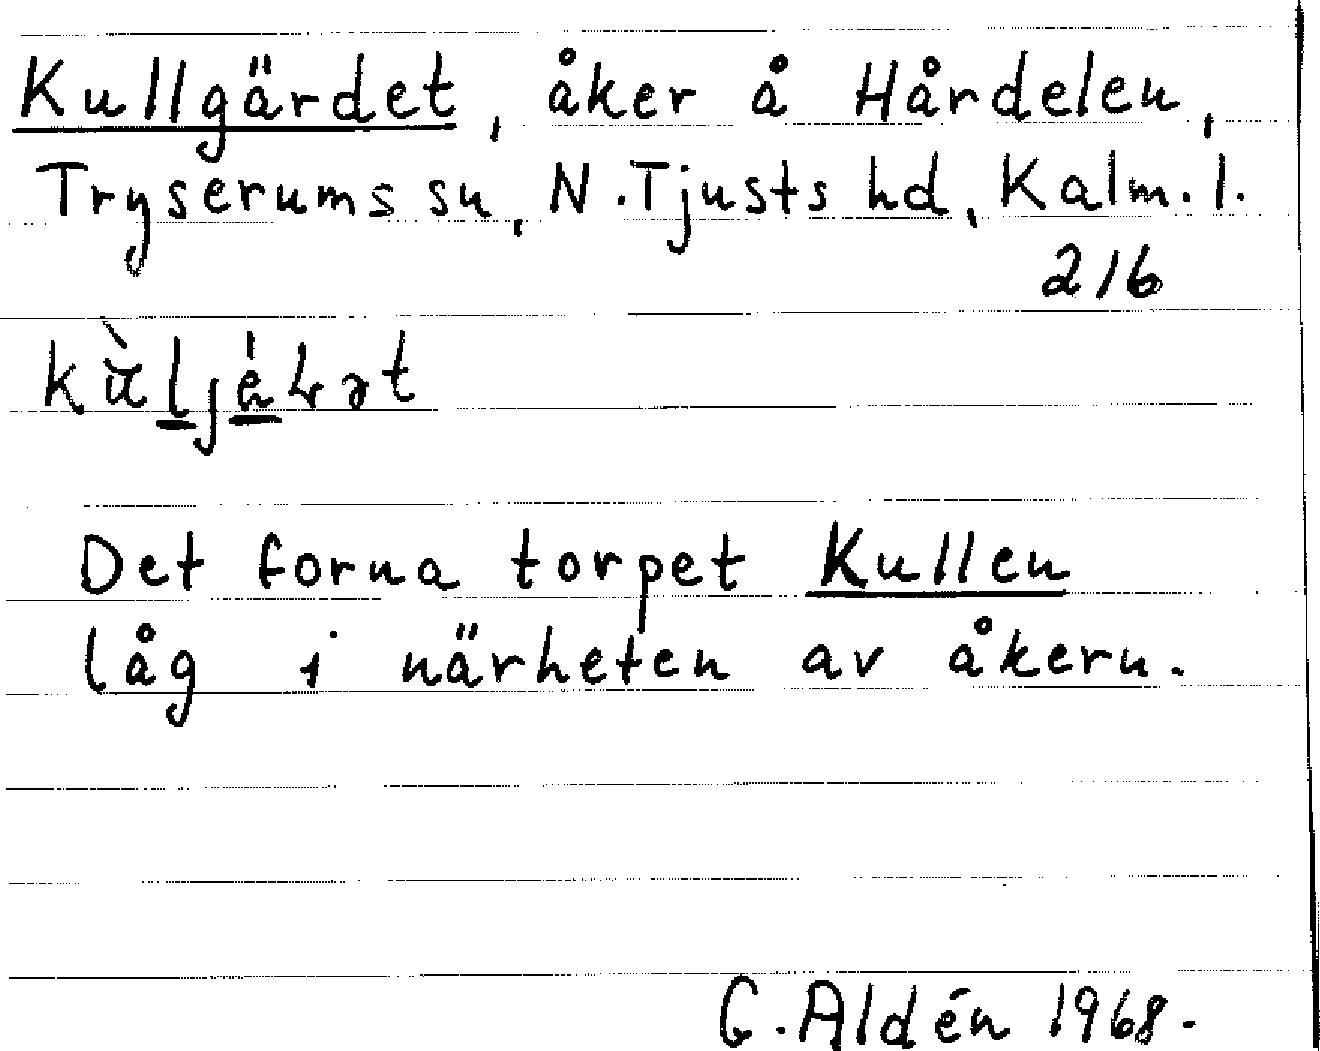 Kullgärdet, åker å Hårdelen,
Tryserums sn, N. Tjusts hd, Kalm. l.
216
Det forna torpet Kullen
låg i närheten av åkern.
G. Aldén 1968.